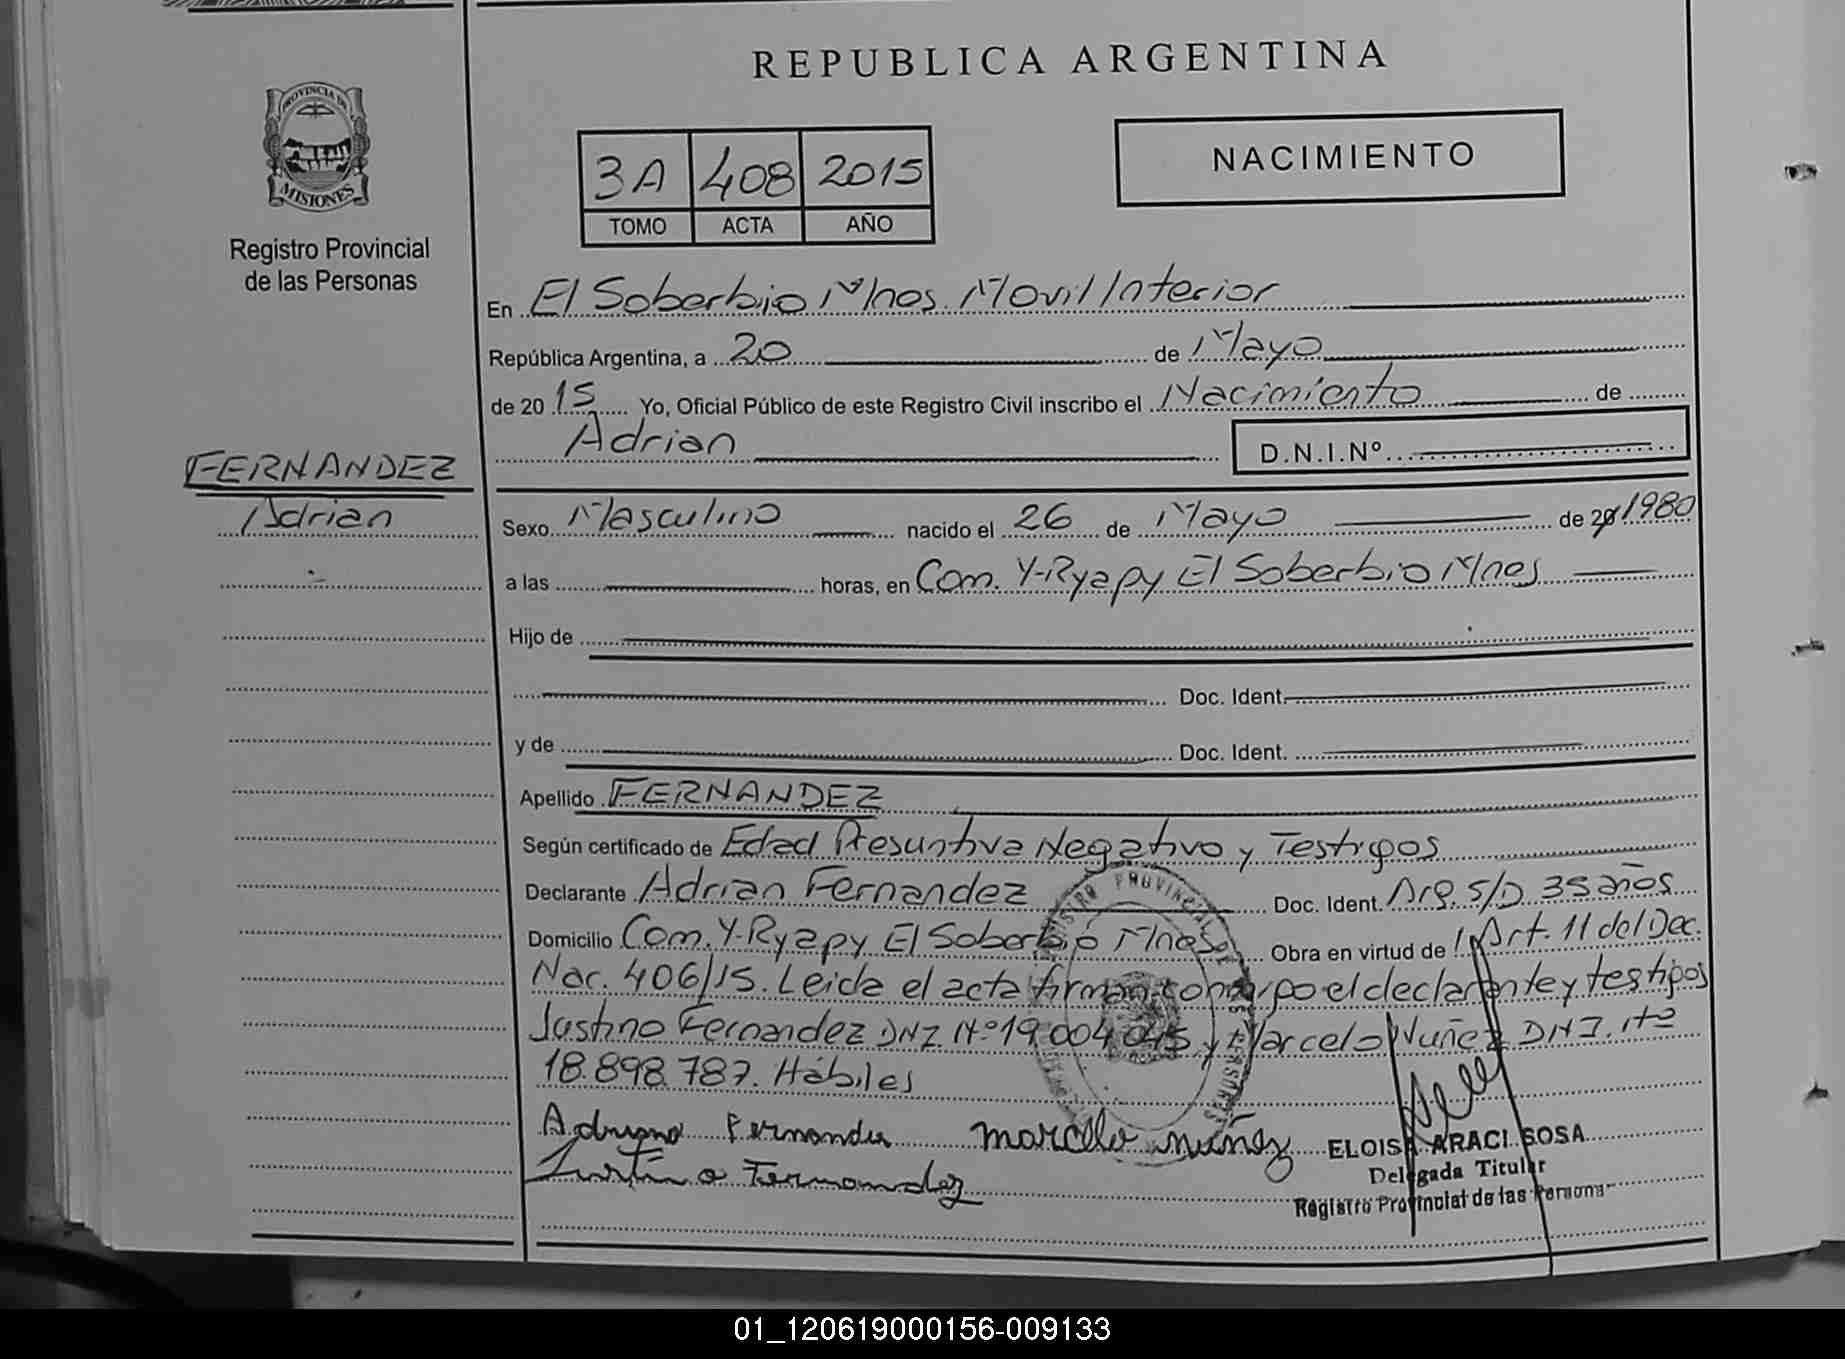 REPUBLICA ARGENTINA
PROVINCIA DE
MISIONES
Registro Provincial
de las Personas
3A 408 2015
TOMO ACTA AÑO
NACIMIENTO
En El Soberbio Mnes. Movil Interior
República Argentina, a 20 de Mayo
de 20 15 Yo, Oficial Público de este Registro Civil inscribo el Nacimiento de
Adrian D.N.I.Nº
FERNANDEZ
Adrian
Sexo Masculino nacido el 26 de Mayo de 20 1980
a las horas, en Com. Y-Ryapy El Soberbio Mnes
Hijo de
Doc. Ident.
y de Doc. Ident.
Apellido FERNANDEZ
Según certificado de Edad Presuntiva Negativo y Testigos
Declarante Adrian Fernandez Doc. Ident. Arg. S/D 35 años
Domicilio Com. Y-Ryapy El Soberbio Mnes Obra en virtud de Art. 11 del Dec.
Nac. 406/15. Leida el acta firman conmigo el declarante y testigos
Justino Fernandez DNI Nº 19.004.045 y Marcelo Nuñez DNI. Nº
18.898.787. Hábiles
Fernandez marcelo nuñez
Justino Fernandez
ELOISA ARACI SOSA
Delegada Titular
Registro Provincial de las Persona
01_120619000156-009133